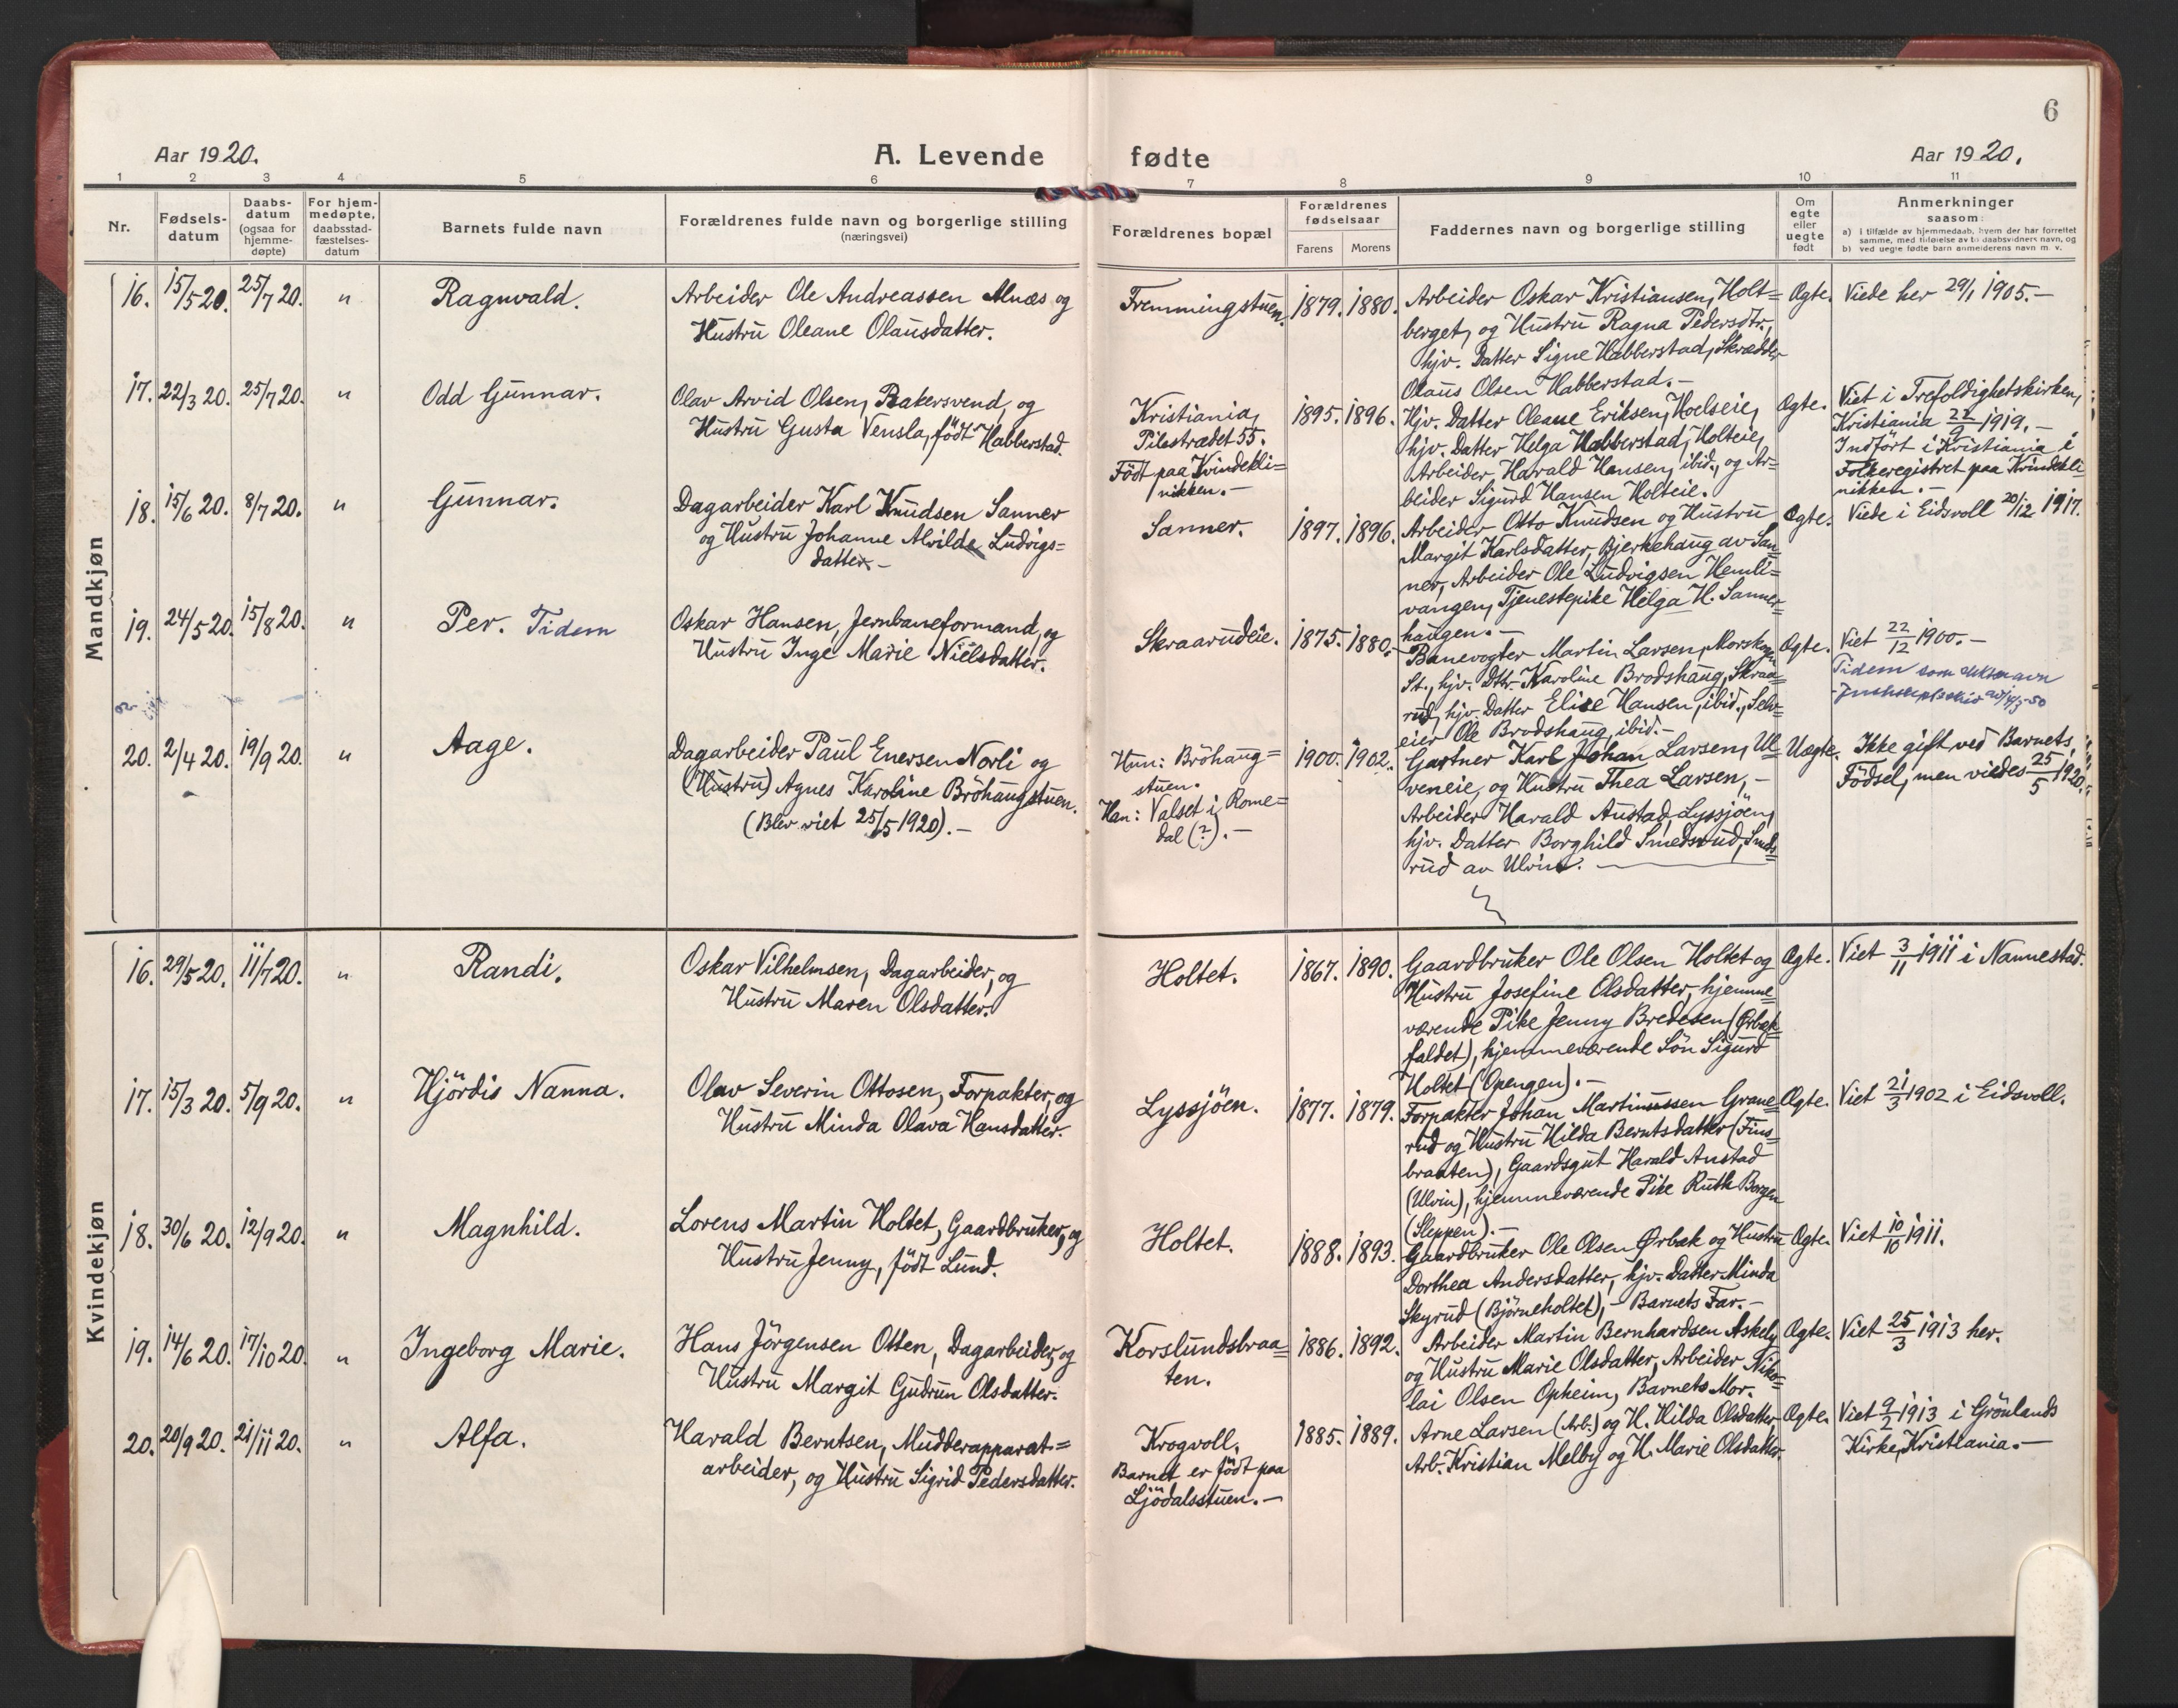 6
Aar 1920.
A. Levende fødte
Aar 1920.
1 2 3 4 5 6 7 8 9 10 11
Nr.
Fødsels-
datum
Daabs-
datum
(ogsaa for
hjemme-
døpte)
For hjem-
medøpte,
daabsstad-
fæstelses-
datum
Barnets fulde navn
Forældrenes fulde navn og borgerlige stilling
(næringsvei)
Forældrenes bopæl
Forældrenes
fødselsaar
Farens Morens
Faddernes navn og borgerlige stilling
Om
egte
eller
uegte
født
Anmerkninger
saasom:
a) i tilfælde av hjemmedaab, hvem der har forrettet
samme, med tilføielse av to daabsvidners navn, og
b) ved uegte fødte barn anmelderens navn m. v.
Mandkjøn
16. 15/5 20. 25/7 20. "
Ragnvald.
Arbeider Ole Andreassen Alnæs og
Hustru Oleane Olausdatter.
Fremmingstuen.
1879. 1880.
Arbeider Oskar Kristiansen, Holt=
berget, og Hustru Ragna Pedersdtr.,
hjv. Datter Signe Habberstad, Skrædder
Olaus Olsen Habberstad.-
Ægte.
Viede her 29/1 1905.-
17. 22/3 20. 25/7 20. "
Odd Gunnar.
Olav Arvid Olsen, Bakersvend, og
Hustru Gusta Vensla, født Habberstad.
Kristiania,
Pilestrædet 55.
Født paa Kvindekli=
nikken.-
1895. 1896.
Hjv. Datter Oleane Eriksen, Hoelseie,
hjv. Datter Helga Habberstad, Holteie,
Arbeider Harald Hansen, ibid., og Ar=
beider Sigurd Hansen Holteie.
Ægte.
Viet i Trefoldighetskirken,
Kristiania 22/9 1919.-
Indført i Kristiania i
Folkeregistret paa Kvindekli
nikken.-
18. 15/6 20. 8/7 20. "
Gunnar.
Dagarbeider Karl Knudsen Sanner
og Hustru Johanne Alvilde Ludvigs=
datter.-
Sanner.
1897. 1896.
Arbeider Otto Knudsen og Hustru
Margit Karlsdatter, Bjerkehaug av San=
ner, Arbeider Ole Ludvigsen Hemli=
vangen, Tjenestepike Helga H. Sanner=
haugen.-
Ægte.
Viede i Eidsvoll 20/12 1917.
19. 24/5 20. 15/8 20. "
Per. Tidem
Oskar Hansen, Jernbaneformand, og
Hustru Inge Marie Nielsdatter.
Skraarudeie.
1875. 1880.
Banevogter Martin Larsen, Morskogen
St., hjv. Dttr. Karoline Brodshaug, Skraa=
rud, hjv. Datter Elise Hansen, ibid., Selv=
eier Ole Brodshaug, ibid.-
Ægte.
Viet 22/12 1900.-
Tidem som
20. 2/4 20. 19/9 20. "
Aage.
Dagarbeider Paul Enersen Norli og
(Hustru) Agnes Karoline Bröhaugstuen.
(Blev viet 25/5 1920).-
Hun: Bröhaug=
stuen.
Han: Valset i Rome=
dal (?).-
1900. 1902.
Gartner Karl Johan Larsen, Ul=
veneie, og Hustru Thea Larsen,-
Arbeider Harald Austad, Lyssjöen,
hjv. Datter Borghild Smedsrud, Smeds=
rud av Ulvin.
Uægte.
Ikke gift ved Barnets
Födsel, men viedes 25/5 1920.
Kvindekjøn
16. 29/5 20. 11/7 20. "
Randi.
Oskar Vilhelmsen, Dagarbeider, og
Hustru Maren Olsdatter.
Holtet.
1867. 1890.
Gaardbruker Ole Olsen Holtet og
Hustru Josefine Olsdatter, hjemme=
værende Pike Jenny Bredesen (Ørbæk=
faldet), hjemmeværende Sön Sigurd
Holtet (Opengen).-
Ægte.
Viet 3/11 1911 i Nannestad.
17. 15/3 20. 5/9 20. "
Hjördis Nanna.
Olav Severin Ottosen, Forpakter, og
Hustru Minda Olava Hansdatter.
Lyssjöen.
1877. 1879.
Forpakter Johan Martinussen Grane=
rud og Hustru Hilda Berntsdatter (Fins=
braaten), Gaardsgut Harald Austad
(Ulvin), hjemmeværende Pike Ruth Borgen
(Sleppen).-
Ægte.
Viet 21/3 1902 i Eidsvoll.
18. 30/6 20. 12/9 20. "
Magnhild.
Lorens Martin Holtet, Gaardbruker, og
Hustru Jenny, født Lund.
Holtet.
1888. 1893.
Gaardbruker Ole Olsen Ørbæk og Hustru
Dorthea Andersdatter, hjv. Datter Minda
Skyrud (Björneholtet),- Barnets Far.-
Ægte.
Viet 10/10 1911.
19. 14/6 20. 17/10 20. "
Ingeborg Marie.
Hans Jörgensen Olsen, Dagarbeider, og
Hustru Margit Gudrun Olsdatter.
Korslundsbraa=
ten.
1886. 1892.
Arbeider Martin Bernhardsen Askely
og Hustru Marie Olsdatter, Arbeider Niko=
lai Olsen Opheim, Barnets Mor.
Ægte.
Viet 25/3 1913 her.
20. 20/9 20. 21/11 20. "
Alfa.
Harald Berntsen, Mudderapparat=
arbeider, og Hustru Sigrid Pedersdatter.
Krogvoll.
Barnet er født paa
Ljödalsstuen.-
1885. 1889.
Arne Larsen (Arb.) og H. Hilda Olsdatter,
Arb. Kristian Melby og H. Marie Olsdatter.
Ægte.
Viet 9/2 1913 i Grönlands
Kirke, Kristiania.-